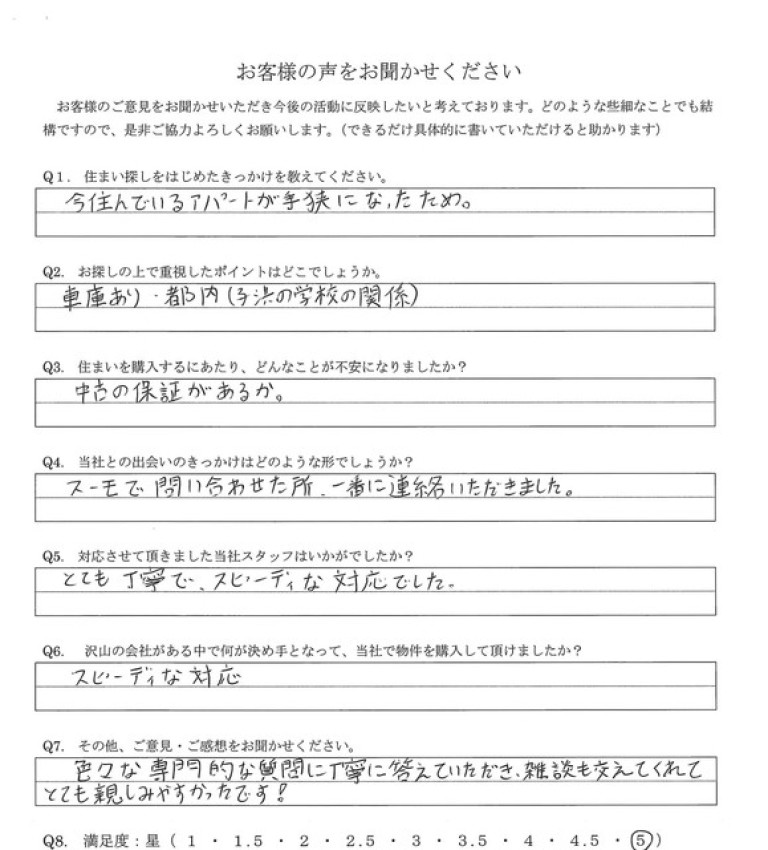 お客様の声をお聞かせください
お客様のご意見をお聞かせいただき今後の活動に反映したいと考えております。どのような些細なことでも結
構ですので、是非ご協力よろしくお願いします。（できるだけ具体的に書いていただけると助かります）
Q1. 住まい探しをはじめたきっかけを教えてください。
今住んでいるアパートが手狭になったため。
Q2. お探しの上で重視したポイントはどこでしょうか。
車庫あり・都内(子供の学校の関係)
Q3. 住まいを購入するにあたり、どんなことが不安になりましたか？
中古の保証があるか。
Q4. 当社との出会いのきっかけはどのような形でしょうか？
スーモで問い合わせた所、一番に連絡いただきました。
Q5. 対応させて頂きました当社スタッフはいかがでしたか？
とても丁寧で、スピーディな対応でした。
Q6. 沢山の会社がある中で何が決め手となって、当社で物件を購入して頂けましたか？
スピーディな対応
Q7. その他、ご意見・ご感想をお聞かせください。
色々な専門的な質問に丁寧に答えていただき、雑談も交えてくれて
とても親しみやすかったです！
Q8. 満足度：星（ 1 ・ 1.5 ・ 2 ・ 2.5 ・ 3 ・ 3.5 ・ 4 ・ 4.5 ・ 5 ）